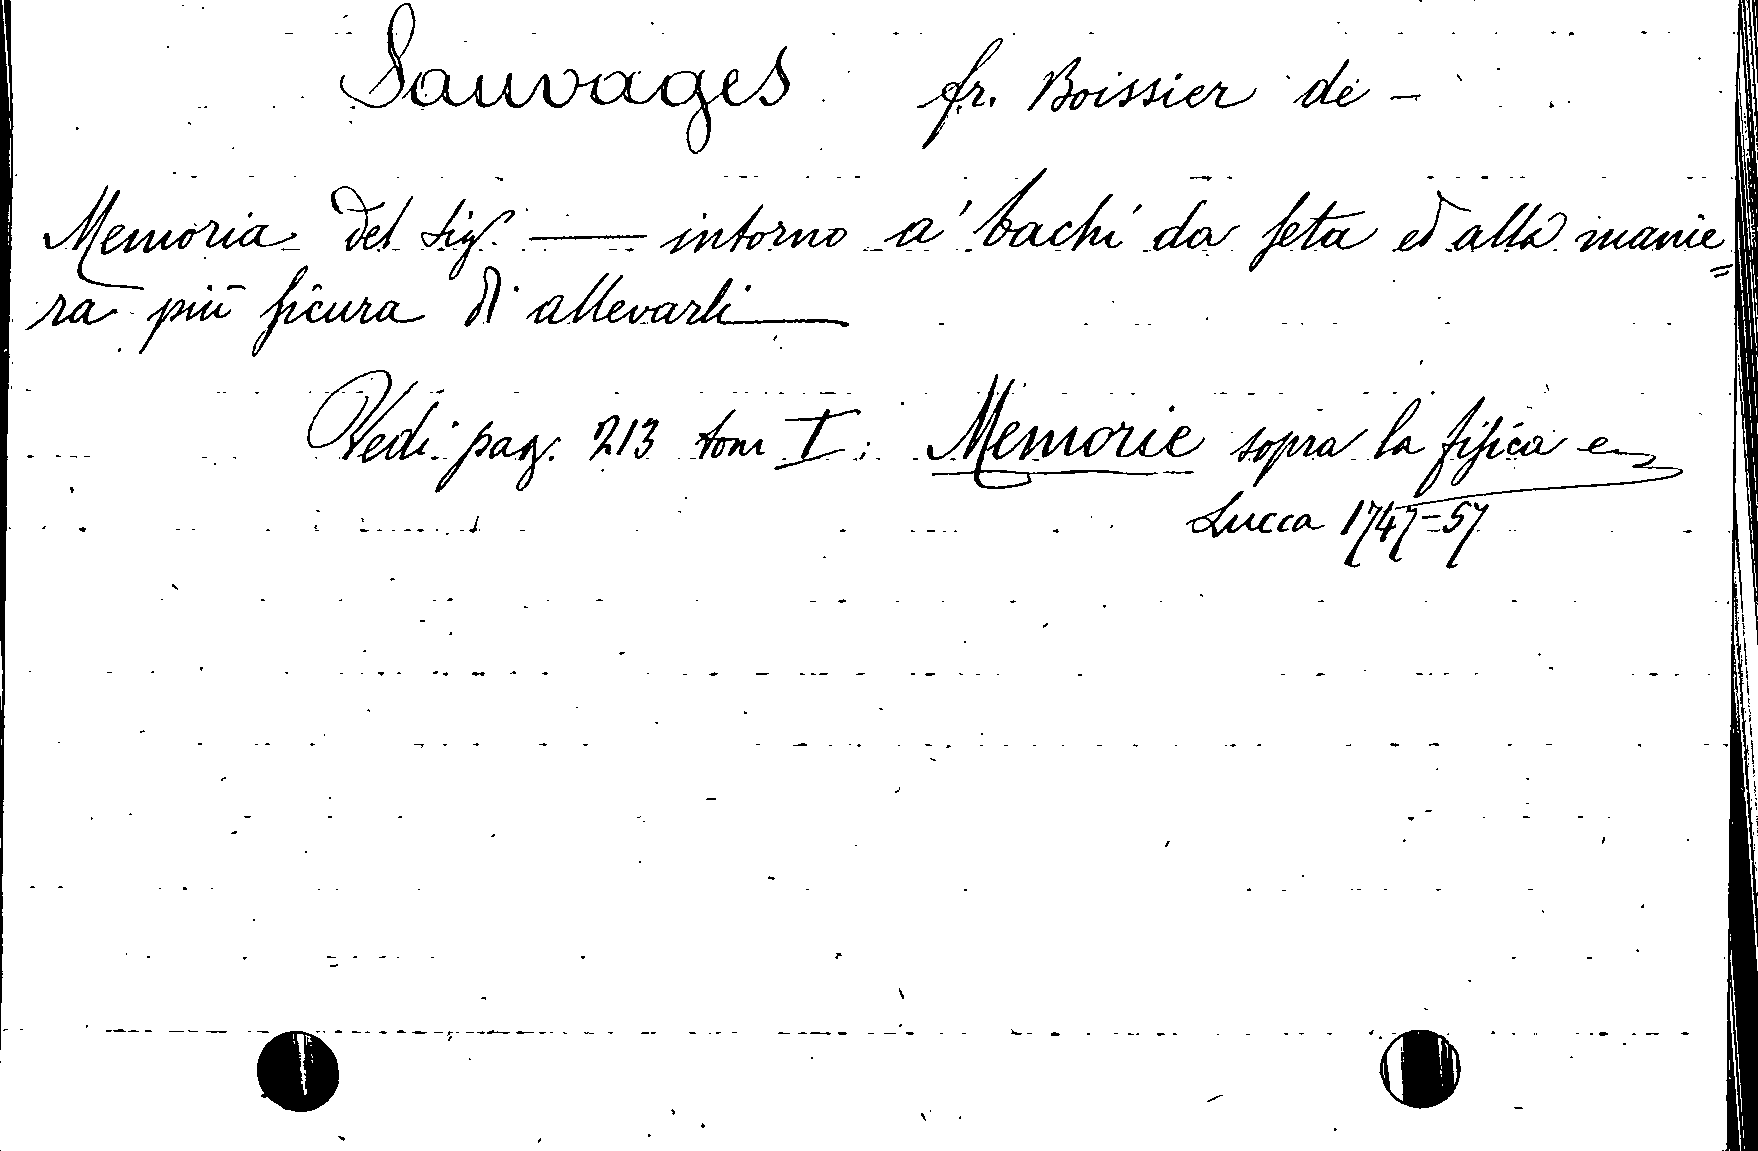 Sauvages fr. Boissier de -
Memoria del Sig. — intorno a' bachi da seta ed alla manie=
ra più sicura di allevarli —
Vedi pag. 213 tom I: Memorie sopra la fisica e
Lucca 1747=57